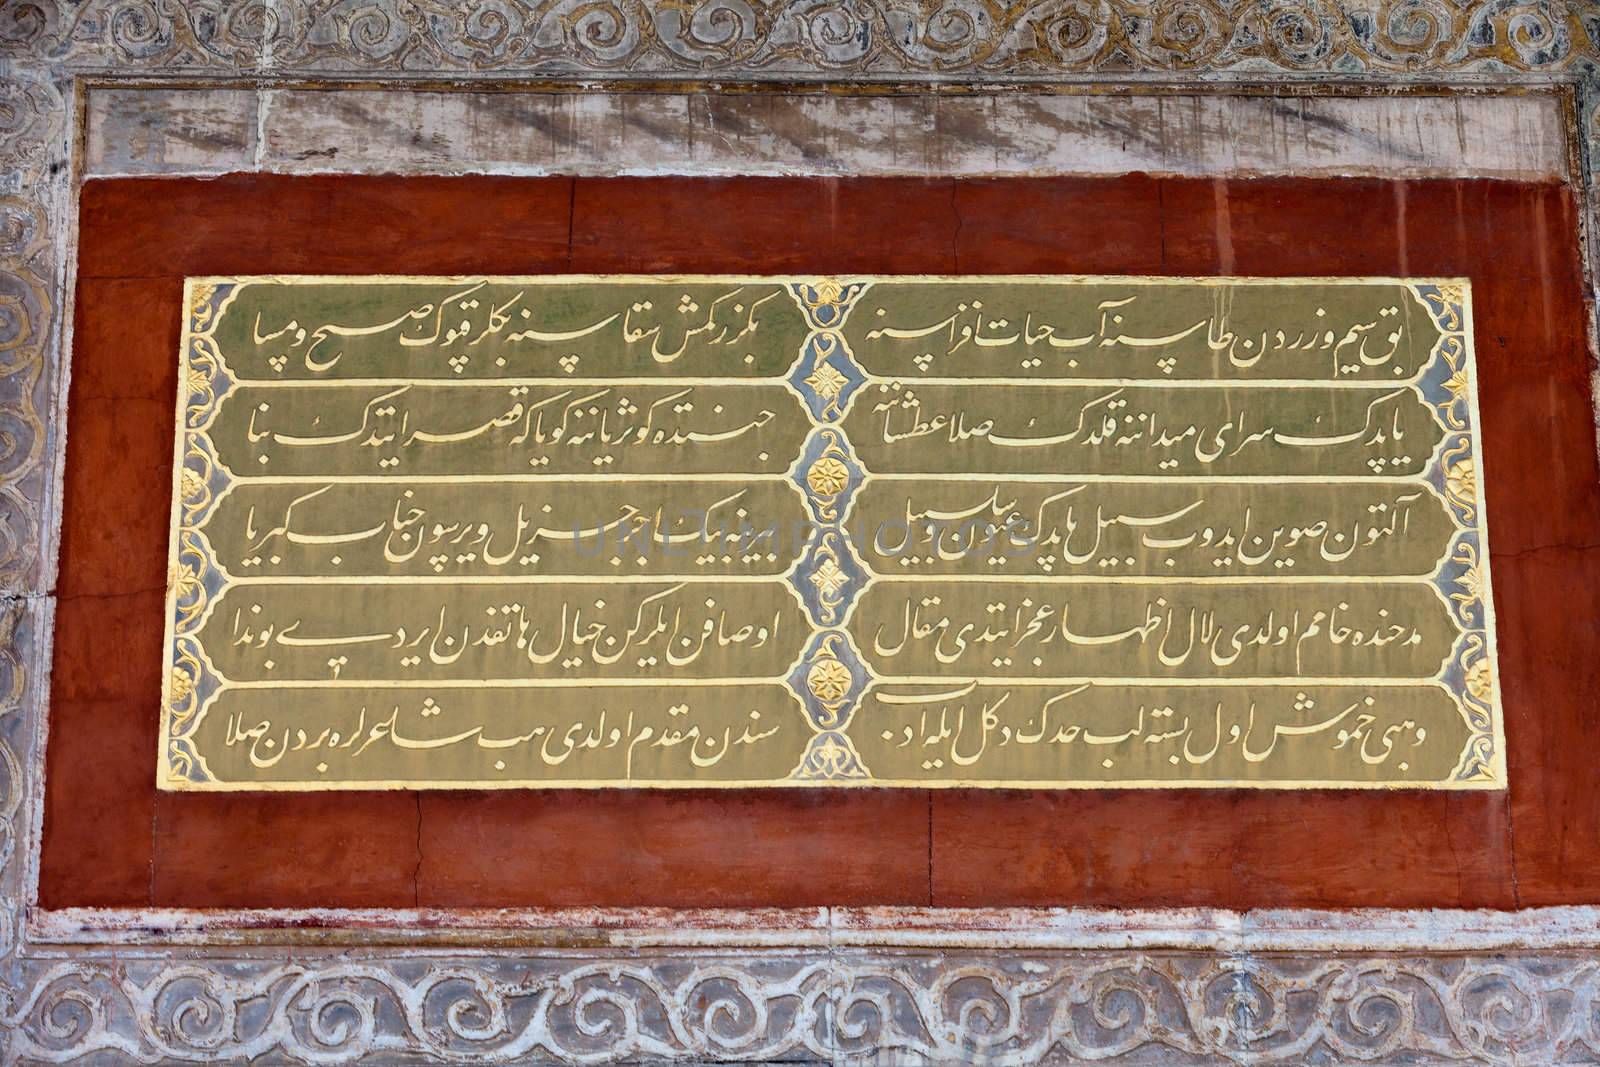 بق سیم و زردن طاسنه آب حیات افزاسنه بکزر کمش سقاسنه بکلر قپوک صبح و مسا
یاپدک سرای میداننه قلدک صلا عطشاننه جنتده کوثر یاننه کویا که قصر ایتدک بنا
آلتون صویین ایدوب سبیل یاپدک عیون سلسبیل یرنه یک اجر جزیل ویرسون جناب کبریا
مدحنده خامم اولدی لال اظهار عجز ایتدی مقال اوصافن ایلرکن خیال هاتفدن ایردی بو ندا
وهبی خموش اول بسته لب حدک دکل ایله ادب سندن مقدم اولدی هب شاعرلره بردن صلا
UNLIMPHOTOS